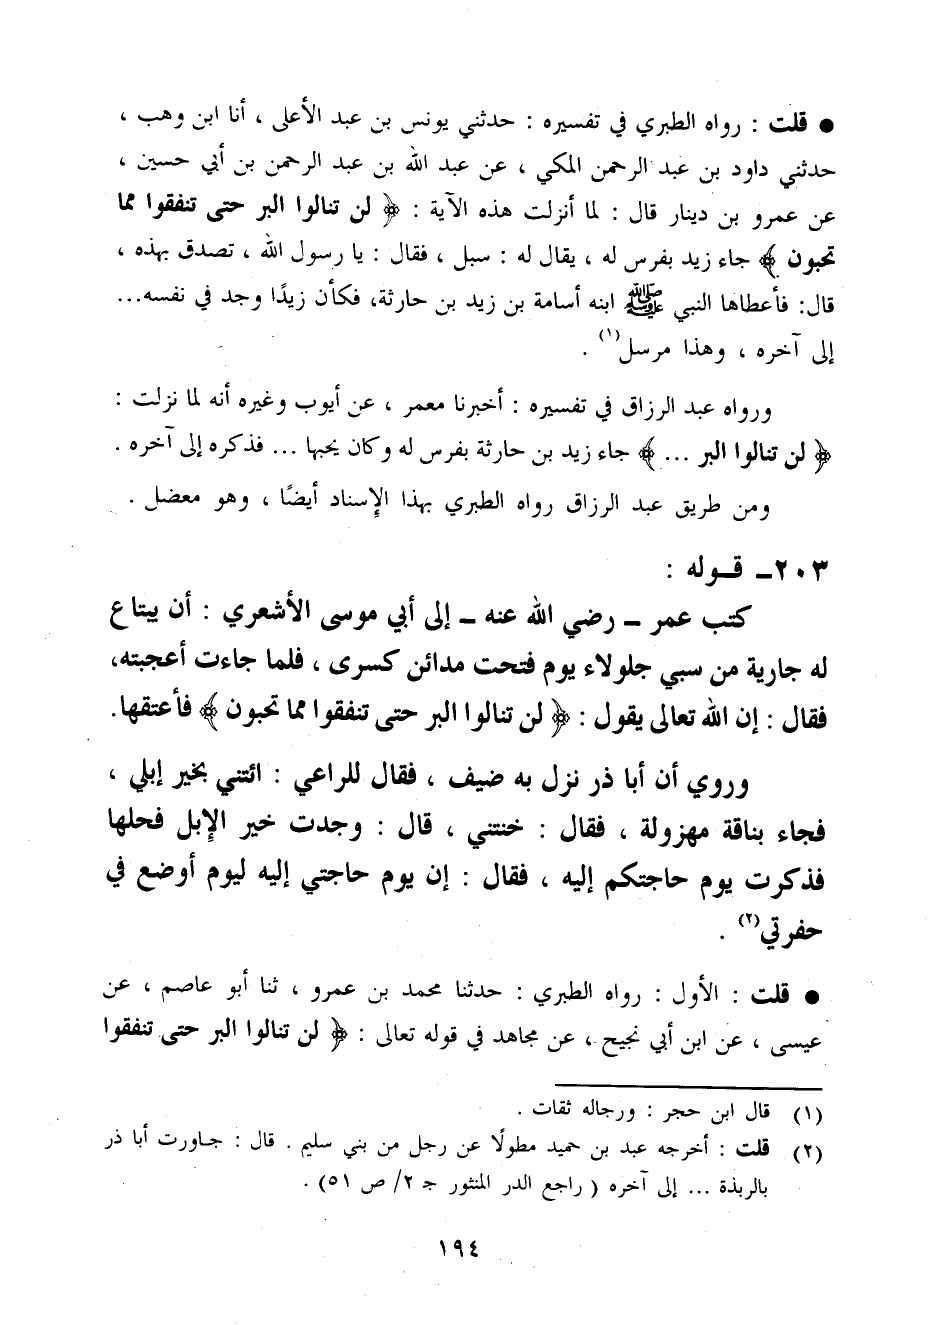 ● قلت : رواه الطبري في تفسيره : حدثني يونس بن عبد الأعلى ، أنا ابن وهب ،
حدثني داود بن عبد الرحمن المكي ، عن عبد الله بن عبد الرحمن بن أبي حسين ،
عن عمرو بن دينار قال : لما أنزلت هذه الآية : ﴿ لن تنالوا البر حتى تنفقوا مما
تحبون ﴾ جاء زيد بفرس له ، يقال له : سبل ، فقال : يا رسول الله ، تصدق بهذه ،
قال: فأعطاها النبي ﷺ ابنه أسامة بن زيد بن حارثة، فكأن زيدًا وجد في نفسه...
إلى آخره ، وهذا مرسل(١) .
ورواه عبد الرزاق في تفسيره : أخبرنا معمر ، عن أيوب وغيره أنه لما نزلت :
﴿ لن تنالوا البر ... ﴾ جاء زيد بن حارثة بفرس له وكان يحبها ... فذكره إلى آخره .
ومن طريق عبد الرزاق رواه الطبري بهذا الإسناد أيضًا ، وهو معضل .
٢٠٣ـ قـوله :
كتب عمر ـ رضي الله عنه ـ إلى أبي موسى الأشعري : أن يبتاع
له جارية من سبي جلولاء يوم فتحت مدائن كسرى ، فلما جاءت أعجبته،
فقال : إن الله تعالى يقول : ﴿ لن تنالوا البر حتى تنفقوا مما تحبون ﴾ فأعتقها.
وروي أن أبا ذر نزل به ضيف ، فقال للراعي : ائتني بخير إبلي ،
فجاء بناقة مهزولة ، فقال : خنتني ، قال : وجدت خير الإبل فحلها
فذكرت يوم حاجتكم إليه ، فقال : إن يوم حاجتي إليه ليوم أوضع في
حفرتي(٢) .
● قلت : الأول : رواه الطبري : حدثنا محمد بن عمرو ، ثنا أبو عاصم ، عن
عيسى ، عن ابن أبي نجيح ، عن مجاهد في قوله تعالى : ﴿ لن تنالوا البر حتى تنفقوا
(١) قال ابن حجر : ورجاله ثقات .
(٢) قلت : أخرجه عبد بن حميد مطولًا عن رجل من بني سليم . قال : جـاورت أبا ذر
بالربذة ... إلى آخره ( راجع الدر المنثور جـ ٢/ ص ٥١) .
١٩٤